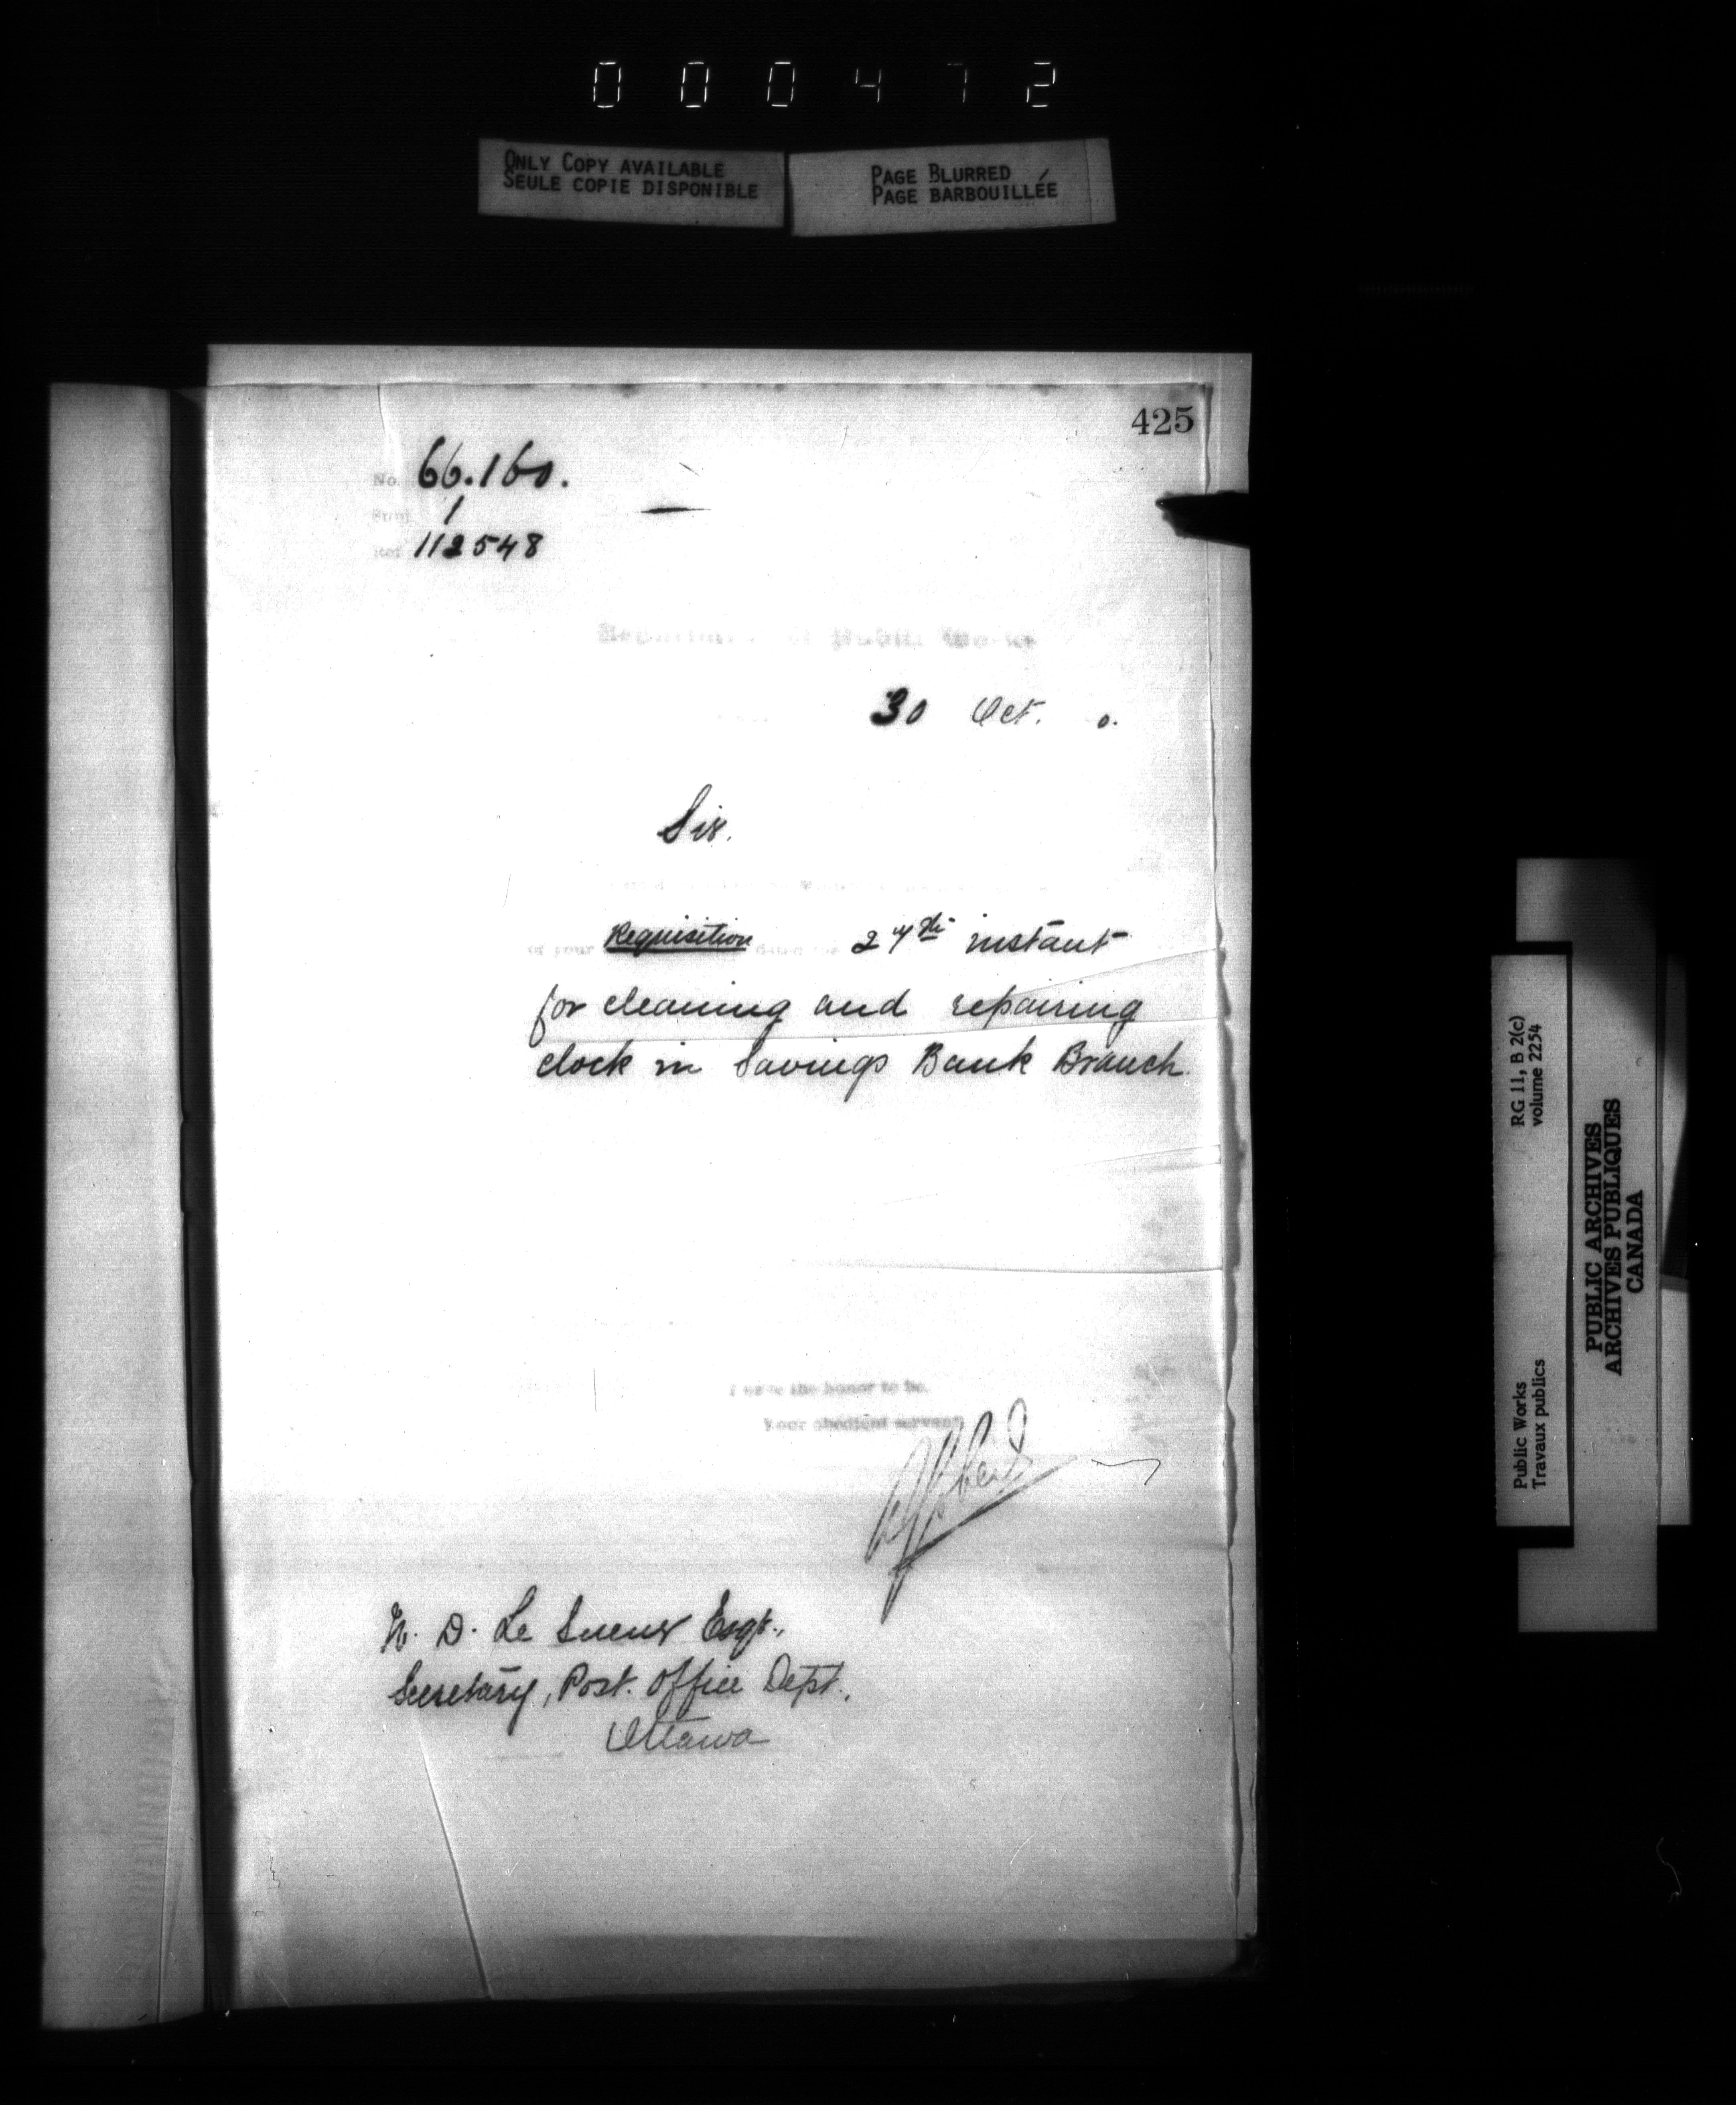 000472
ONLY COPY AVAILABLE
SEULE COPIE DISPONIBLE
PAGE BLURRED
PAGE BARBOUILLÉE
425
No. 66.160.
Subj. 1
Ref. 112548
Department of Public Works
30 Oct. 0.
Sir.
of your Requisition dated the 27th instant
for cleaning and repairing
clock in Savings Bank Branch.
I have the honor to be,
Your obedient servant
W. D. Le Sueur Esqr.,
Secretary, Post. Office Dept.,
Ottawa
RG 11, B 2(c)
volume 2254
Public Works
Travaux publics
PUBLIC ARCHIVES
ARCHIVES PUBLIQUES
CANADA